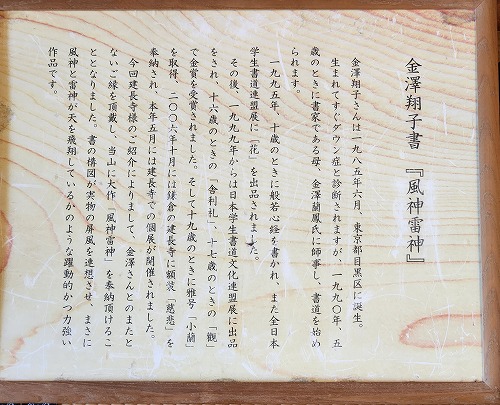 金澤翔子書『風神雷神』
金澤翔子さんは一九八五年六月、東京都目黒区に誕生。
生まれてすぐダウン症と診断されますが、一九九〇年、五
歳のときに書家である母、金澤蘭鳳氏に師事し、書道を始め
られます。
一九九五年、十歳のときに般若心経を書かれ、また全日本
学生書道連盟展に「花」を出品されました。
その後、一九九九年からは日本学生書道文化連盟展に出品
をされ、十六歳のときの「舎利礼」、十七歳のときの「観」
で金賞を受賞されました。そして十九歳のときに雅号「小蘭」
を取得、二〇〇六年十月には鎌倉の建長寺に額装「慈悲」を
奉納され、本年五月には建長寺での個展が開催されました。
今回建長寺様のご紹介によりまして、金澤さんとのまたと
ないご縁を頂戴し、当山に大作「風神雷神」を奉納頂けるこ
ととなりました。書の構図が実物の屏風を連想させ、まさに
風神と雷神が天を飛翔しているかのような躍動的かつ力強い
作品です。